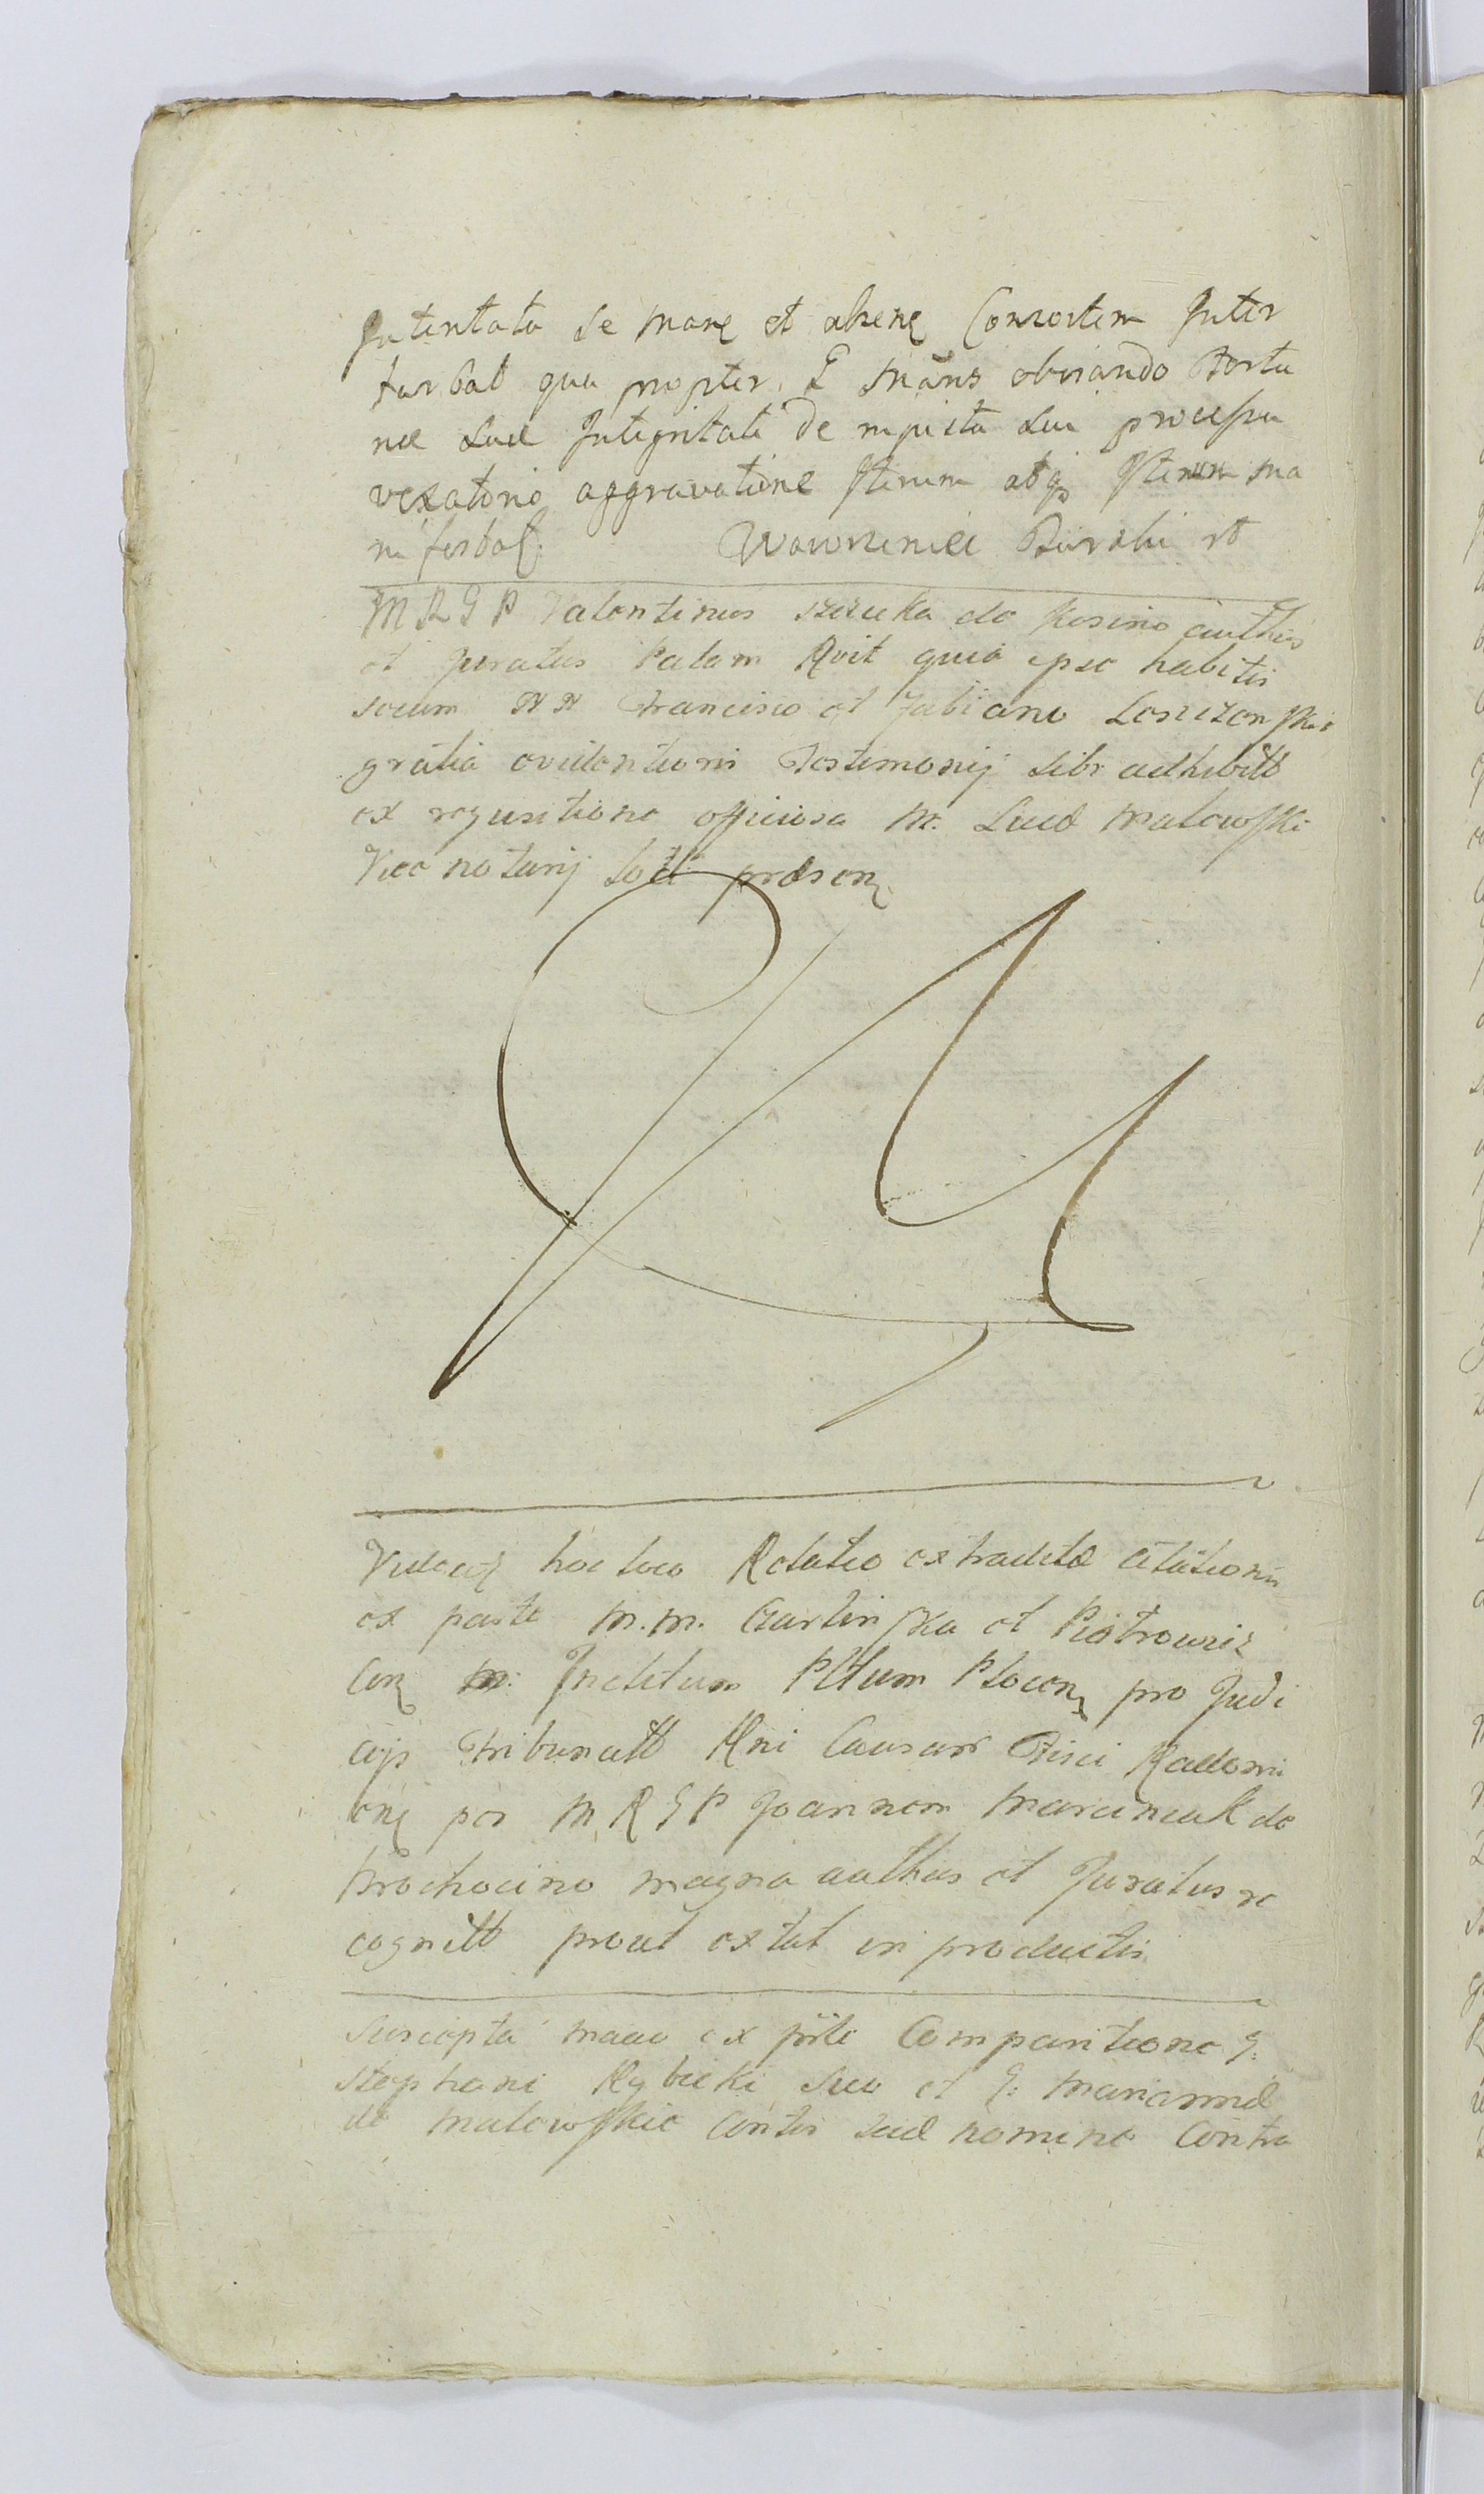 Intentata se mane et absene Consortem Inter
turbat qua propter E mans obviando Fortu
nae suae Integritati de injusta sui processu
vexatorio aggravatione Iterum atq Iterum ma
nifestat. Wawrzeniec Burski
M R G P Valentinus szczuka de Kosino authus
et Juratus Palam Rvit quia ipse habitis
secum NN Francisco et Fabiano
gratia evidentioris Testimonij sibi adhibitt
ex requisitione officiosa M. Lud Malowski
Vice notarij prdsen
hoc loco Relatio extraditae Citationis
ex parte M.M. Czarlinska et Piotrowicz
Con M. Inclitum Plocen pro Judi
cijs Tribunatt Rni Causar Fisci Radomi
en per M R G P Joannem Marciniak de
Prochocino magna authus et Juratus re
cognitt prout extat in productis
Suscepta ex pnte Comparitione G:
Stephani Rybicki suo et G: Mariannae
de Malowskie Contis suae nomine Contra